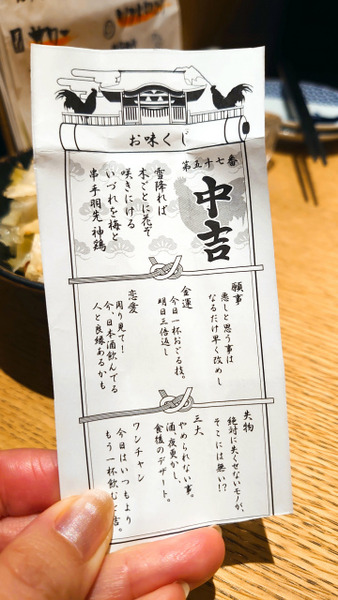 お味くじ
第五十七番
中吉
雪降れば
木ごとに花ぞ
咲きにける
いづれを梅と
串手羽先神鶏
願事
悪しと思う事は
なるだけ早く改めし
金運
今日一杯おごる技。
明日三倍返し
恋愛
周り見て、
今、日本酒飲んでる
人と良縁あるかも
失物
絶対に失くせないモノが、
そこには無い!?
三大
やめられない事。
酒、夜更かし、
食後のデザート。
ワンチャン
今日はいつもより
もう一杯飲むと吉。